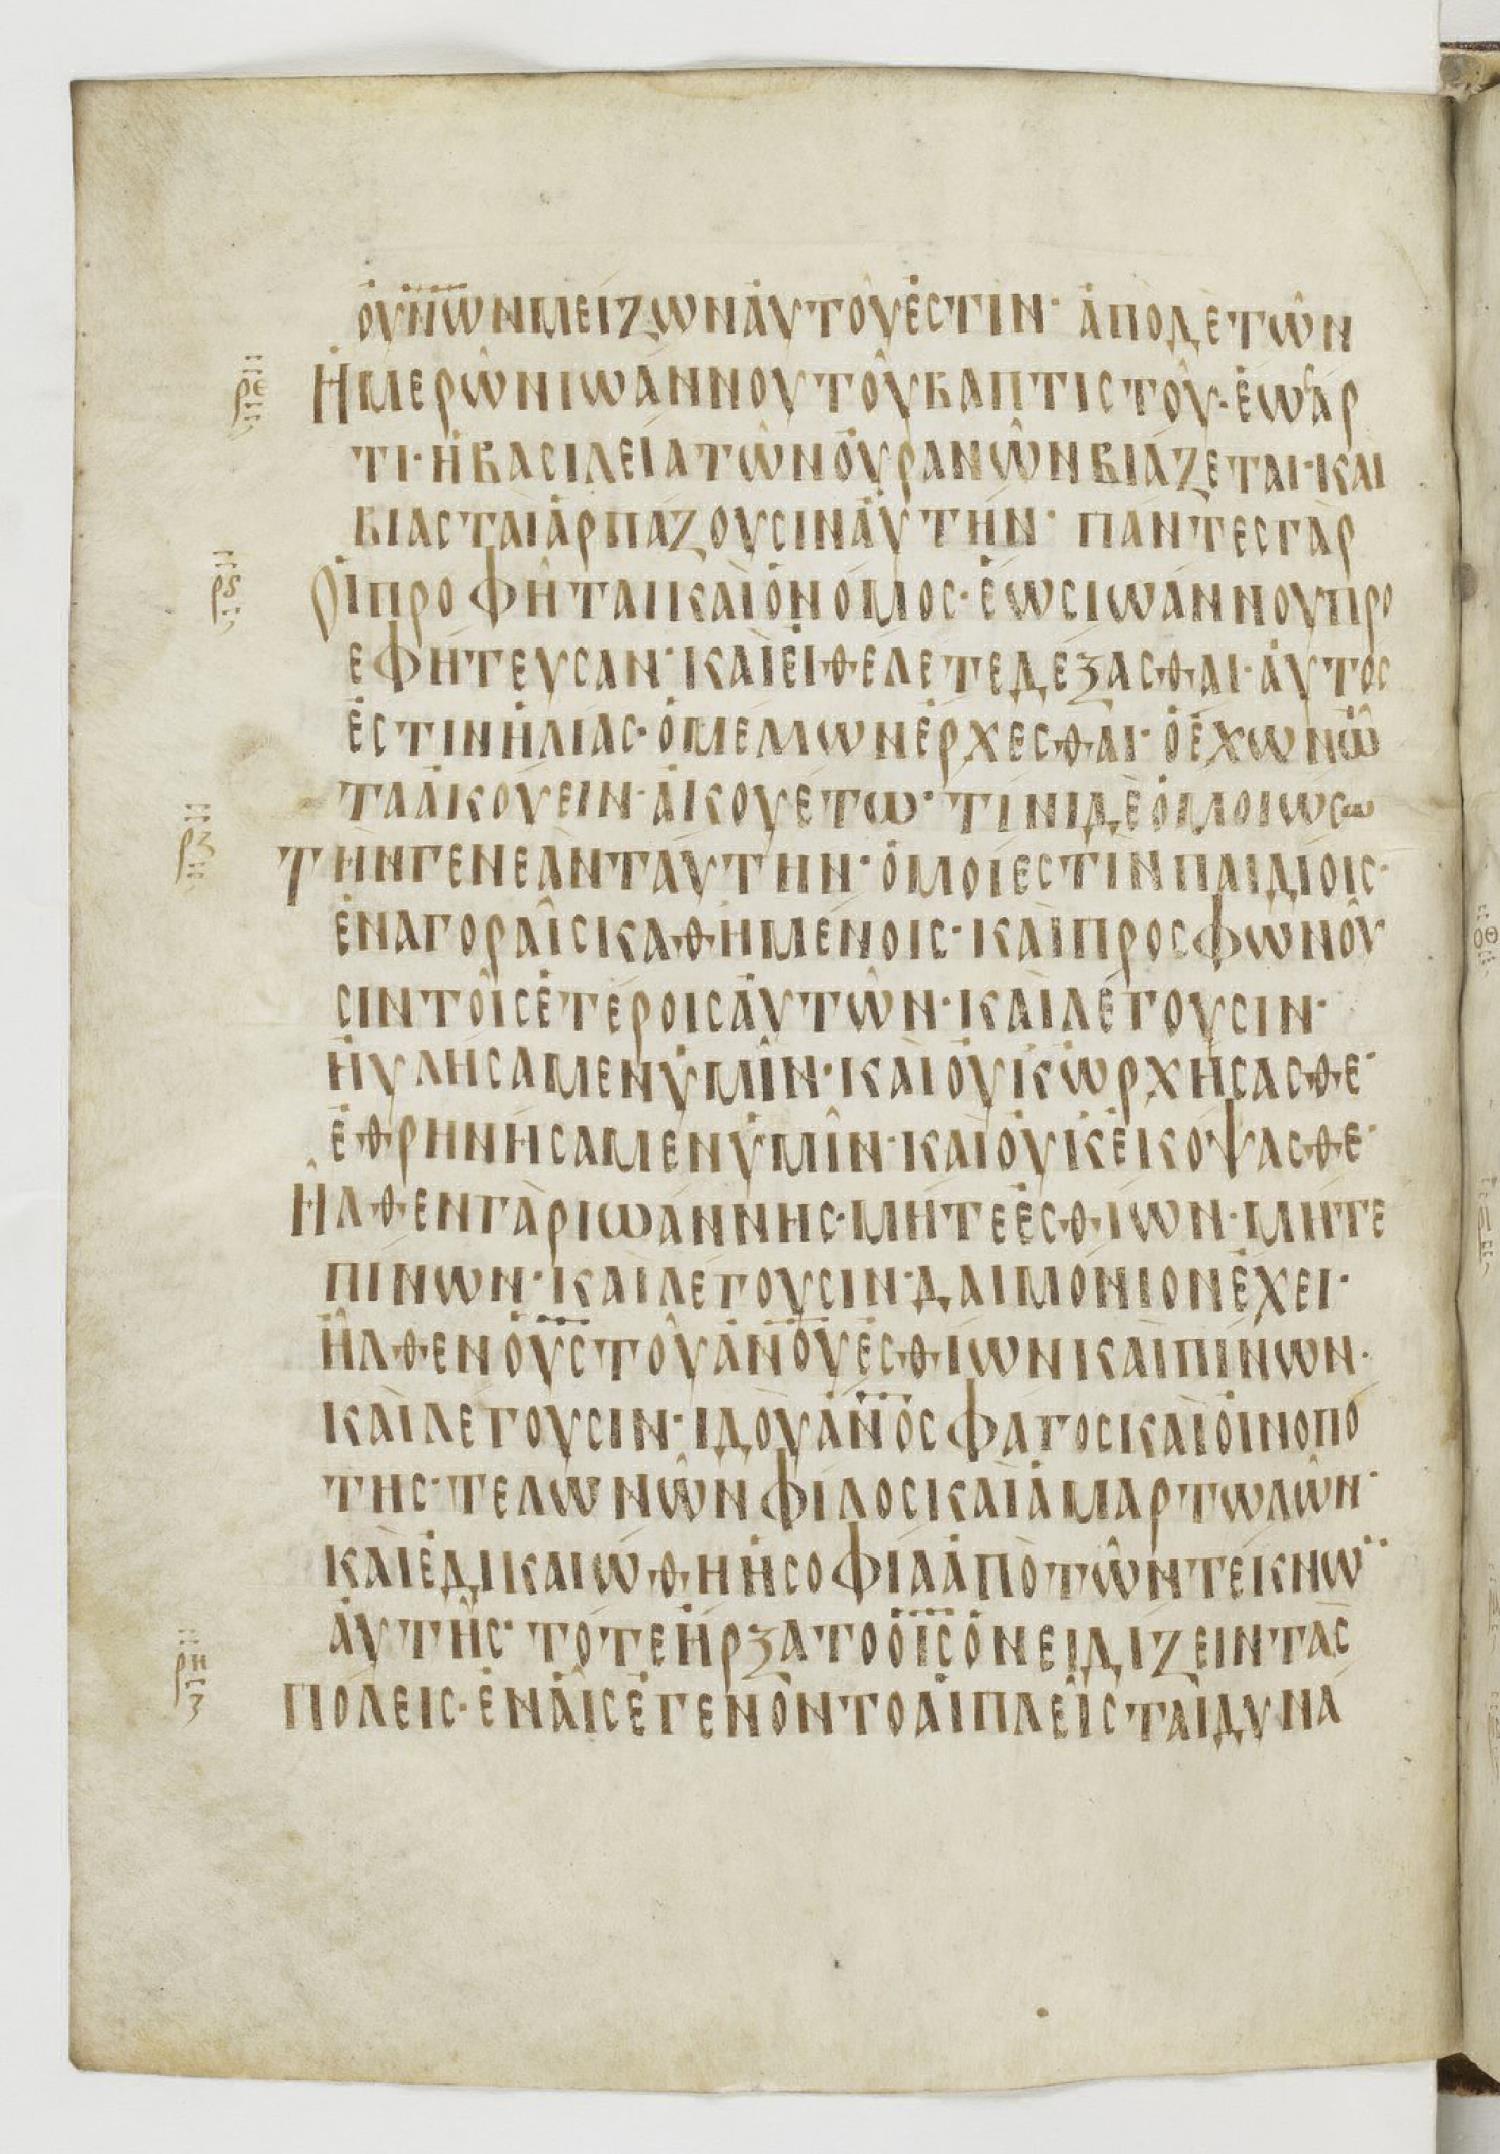 ΟΥΝΩΝΜΕΙΖΩΝΑΥΤΟΥΕΣΤΙΝ· ΑΠΟΔΕΤΩΝ
ρε ΗΜΕΡΩΝΙΩΑΝΝΟΥΤΟΥΒΑΠΤΙΣΤΟΥ·ΕΩΣΑΡ
ΤΙ·ΗΒΑΣΙΛΕΙΑΤΩΝΟΥΡΑΝΩΝΒΙΑΖΕΤΑΙ·ΚΑΙ
ΒΙΑΣΤΑΙΑΡΠΑΖΟΥΣΙΝΑΥΤΗΝ· ΠΑΝΤΕΣΓΑΡ
ρς ΟΙΠΡΟΦΗΤΑΙΚΑΙΟΝΟΜΟΣ·ΕΩΣΙΩΑΝΝΟΥΠΡΟ
ΕΦΗΤΕΥΣΑΝ·ΚΑΙΕΙΘΕΛΕΤΕΔΕΞΑΣΘΑΙ·ΑΥΤΟΣ
ΕΣΤΙΝΗΛΙΑΣ·ΟΜΕΛΛΩΝΕΡΧΕΣΘΑΙ·ΟΕΧΩΝΩ
ΤΑΑΚΟΥΕΙΝ·ΑΚΟΥΕΤΩ·ΤΙΝΙΔΕΟΜΟΙΩΣΩ
ρζ ΤΗΝΓΕΝΕΑΝΤΑΥΤΗΝ·ΟΜΟΙΕΣΤΙΝΠΑΙΔΙΟΙΣ·
ΕΝΑΓΟΡΑΙΣΚΑΘΗΜΕΝΟΙΣ·ΚΑΙΠΡΟΣΦΩΝΟΥ
ΣΙΝΤΟΙΣΕΤΕΡΟΙΣΑΥΤΩΝ·ΚΑΙΛΕΓΟΥΣΙΝ·
ΗΥΛΗΣΑΜΕΝΥΜΙΝ·ΚΑΙΟΥΚΩΡΧΗΣΑΣΘΕ·
ΕΘΡΗΝΗΣΑΜΕΝΥΜΙΝ·ΚΑΙΟΥΚΕΚΟΨΑΣΘΕ·
ΗΛΘΕΝΓΑΡΙΩΑΝΝΗΣ·ΜΗΤΕΕΣΘΙΩΝ·ΜΗΤΕ
ΠΙΝΩΝ·ΚΑΙΛΕΓΟΥΣΙΝ·ΔΑΙΜΟΝΙΟΝΕΧΕΙ·
ΗΛΘΕΝΟΥΣΤΟΥΑΝΟΥΕΣΘΙΩΝΚΑΙΠΙΝΩΝ·
ΚΑΙΛΕΓΟΥΣΙΝ·ΙΔΟΥΑΝΟΣΦΑΓΟΣΚΑΙΟΙΝΟΠΟ
ΤΗΣ·ΤΕΛΩΝΩΝΦΙΛΟΣΚΑΙΑΜΑΡΤΩΛΩΝ·
ΚΑΙΕΔΙΚΑΙΩΘΗΗΣΟΦΙΑΑΠΟΤΩΝΤΕΚΝΩ¨
ΑΥΤΗΣ·ΤΟΤΕΗΡΞΑΤΟΟΙΣΟΝΕΙΔΙΖΕΙΝΤΑΣ
ρη ΠΟΛΕΙΣ·ΕΝΑΙΣΕΓΕΝΟΝΤΟΑΙΠΛΕΙΣΤΑΙΔΥΝΑ